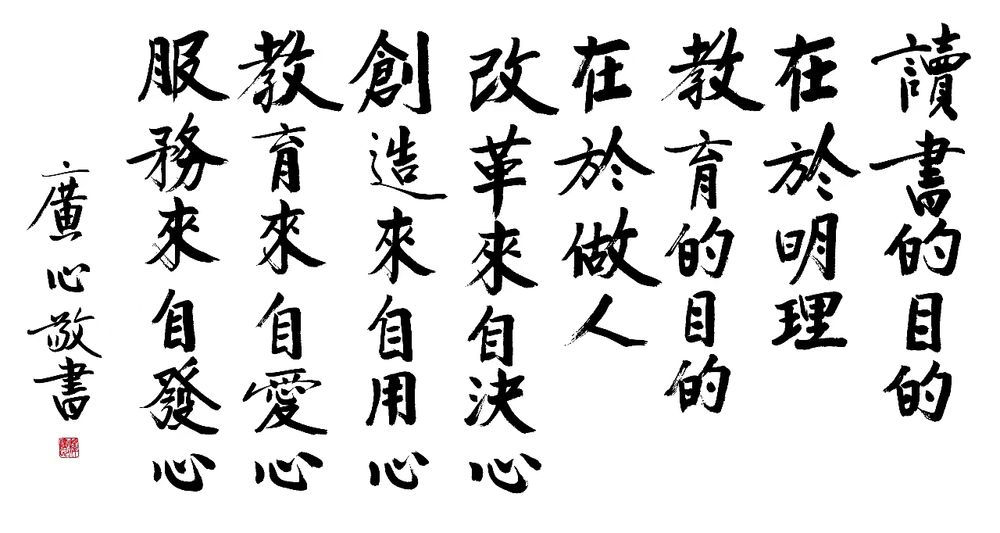 讀書的目的
在於明理
教育的目的
在於做人
改革來自決心
創造來自用心
教育來自愛心
服務來自發心
廣心敬書